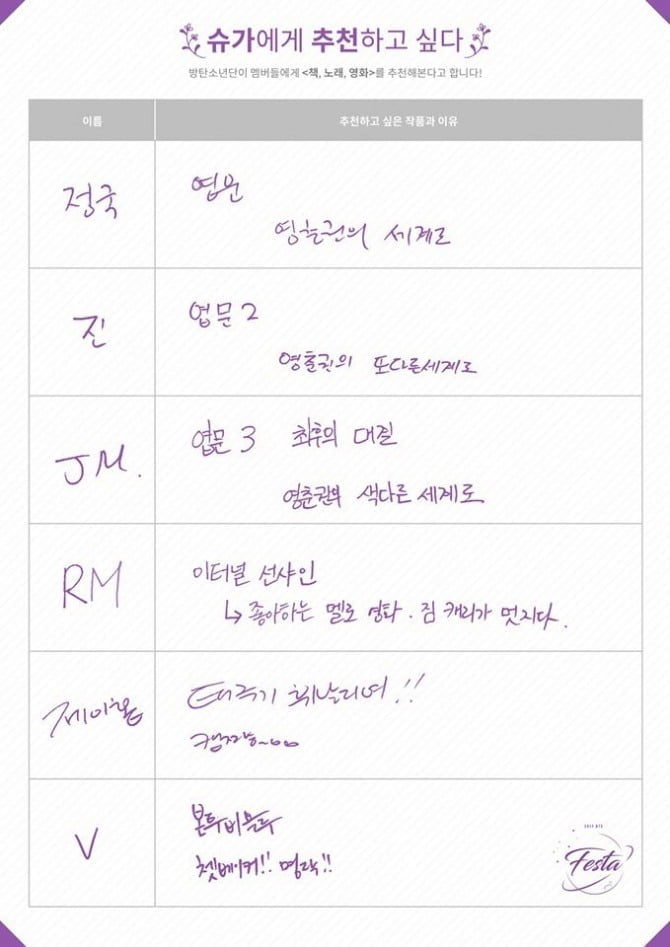 슈가에게 추천하고 싶다
방탄소년단이 멤버들에게 <책, 노래, 영화>를 추천해본다고 합니다!
이름
추천하고 싶은 작품과 이유
정국
엽문
영춘권의 세계로
진
엽문 2
영춘권의 또다른세계로
JM.
엽문 3 최후의 대결
영춘권의 색다른 세계로
RM
이터널 선샤인
↳ 좋아하는 멜로 영화. 짐 캐리가 멋지다.
제이홉
태극기 휘날리며!!
V
본투비블루
쳇베이커!! 명작!!
2017 BTS
Festa